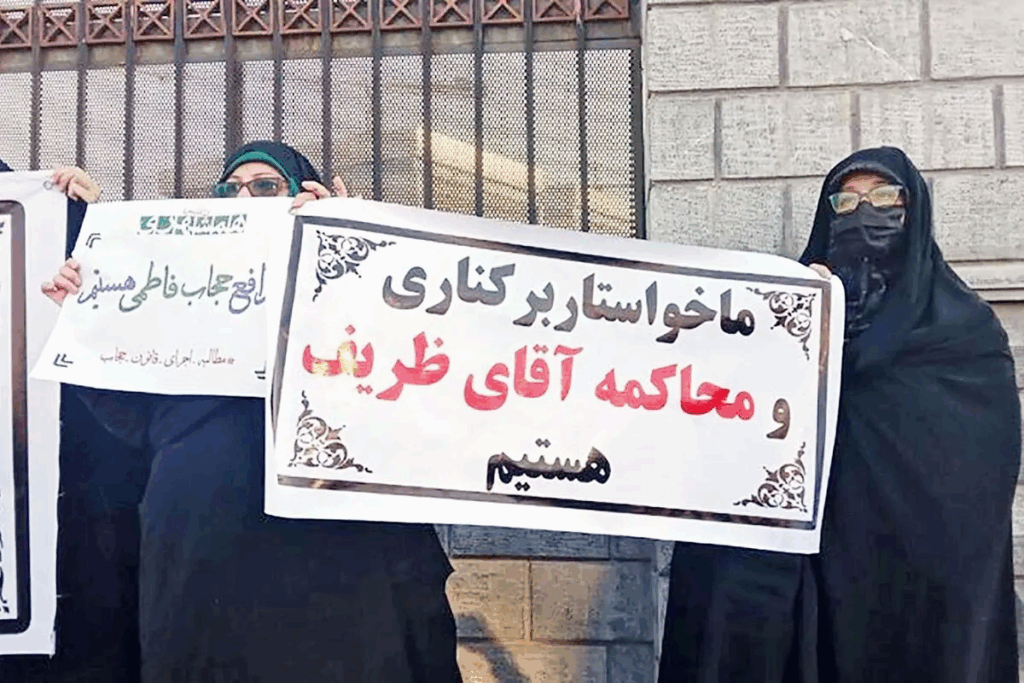 ما خواستار برکناری
و محاکمه آقای ظریف
هستیم
مدافع حجاب فاطمی هستیم
#مطالبه_اجرای_قانون_حجاب